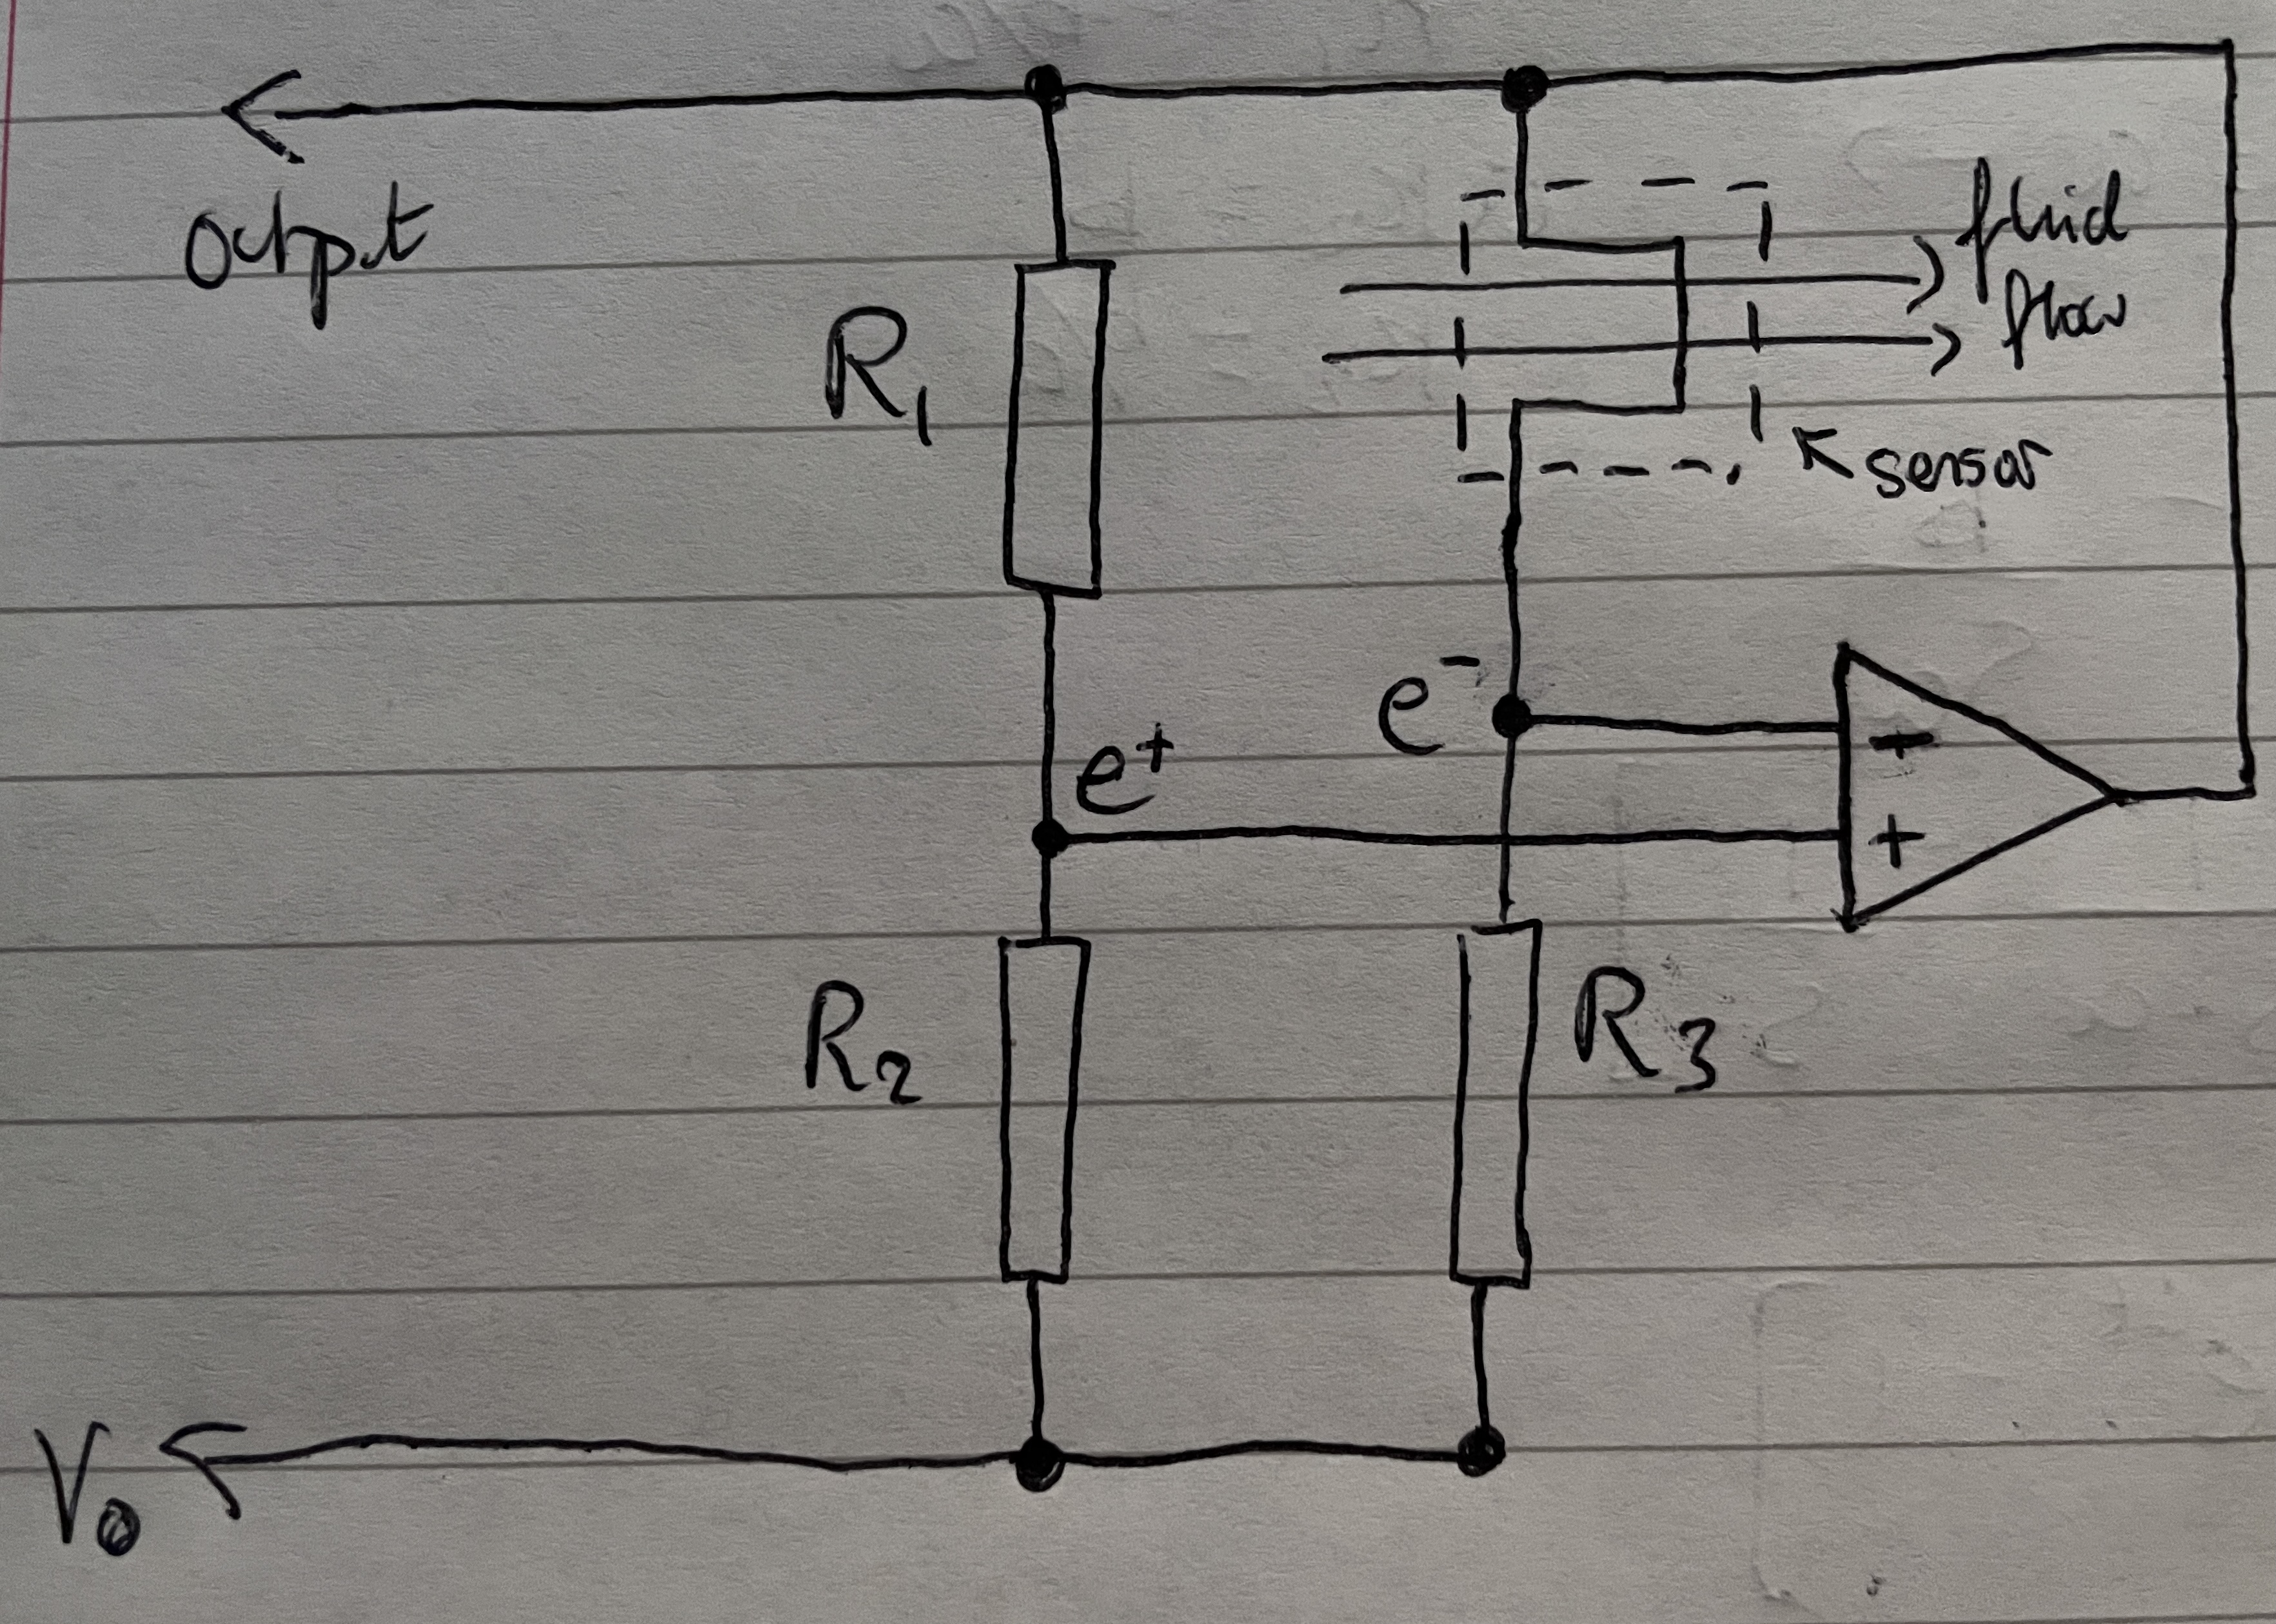 Output
fluid
flow
R1
sensor
e-
e+
-
+
R2
R3
V0